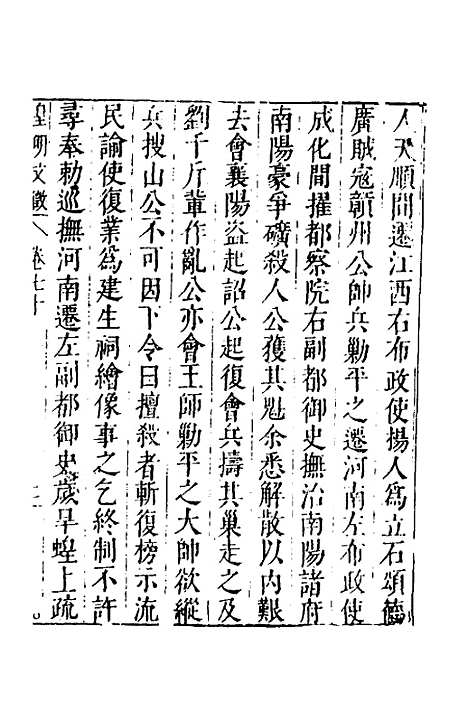 人天順間遷江西右布政使揚人為立石頌德
廣賊寇贑州公帥兵勦平之遷河南左布政使
成化間擢都察院右副都御史撫治南陽諸府
南陽豪爭礦殺人公獲其魁余悉解散以內艱
去會襄陽盗起詔公起復會兵擣其巢走之及
劉千斤軰作亂公亦會王師勦平之大帥欲縱
兵搜山公不可因下令曰擅殺者斬復榜示流
民諭使復業為建生祠繪像事之乞終制不許
尋奉勅巡撫河南遷左副都御史歲旱蝗上疏
皇明文徵 卷七十